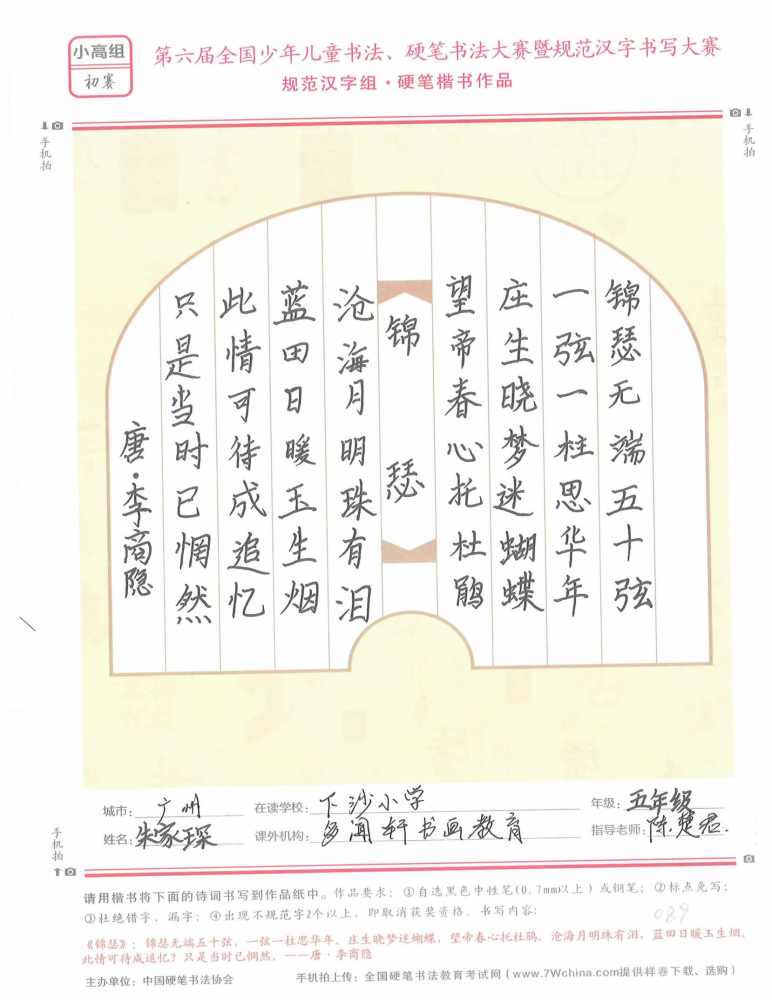 小高组
初赛
第六届全国少年儿童书法、硬笔书法大赛暨规范汉字书写大赛
规范汉字组·硬笔楷书作品
手机拍
手机拍
锦瑟无端五十弦
一弦一柱思华年
庄生晓梦迷蝴蝶
望帝春心托杜鹃
锦瑟
沧海月明珠有泪
蓝田日暖玉生烟
此情可待成追忆
只是当时已惘然
唐·李商隐
城市：广州 在读学校：下沙小学 年级：五年级
姓名：朱家琛 课外机构：多闻轩书画教育 指导老师：陈楚君.
手机拍
请用楷书将下面的诗词书写到作品纸中。作品要求：①自选黑色中性笔(0.7mm以上)或钢笔；②标点免写；
③杜绝错字、漏字；④出现不规范字2个以上，即取消获奖资格。书写内容：
089
《锦瑟》：锦瑟无端五十弦，一弦一柱思华年。庄生晓梦迷蝴蝶，望帝春心托杜鹃。沧海月明珠有泪，蓝田日暖玉生烟。
此情可待成追忆？只是当时已惘然。——唐·李商隐
主办单位：中国硬笔书法协会 手机拍上传：全国硬笔书法教育考试网(www.7Wchina.com提供样卷下载、选购)